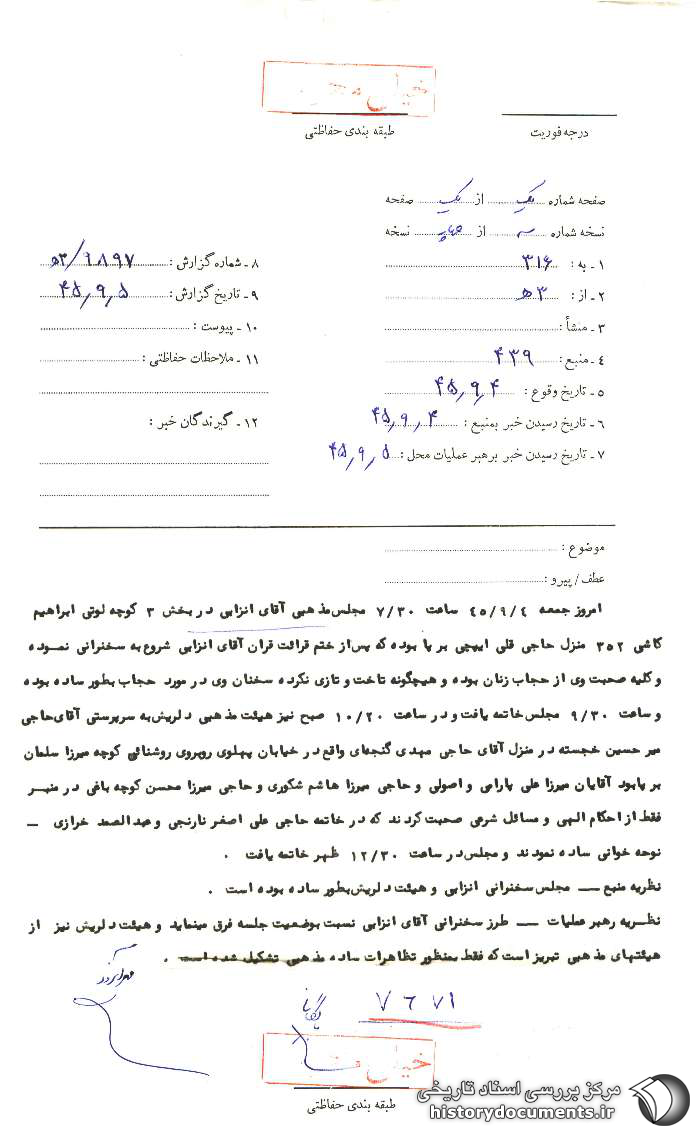 خیلی محرمانه
درجه فوریت
طبقه بندی حفاظتی
صفحه شماره یک از یک صفحه
نسخه شماره سه از چهار نسخه
۱ ـ به : ۳۱۶
۲ ـ از : ۵۳
۳ ـ منشأ :
۴ ـ منبع : ۴۳۹
۵ ـ تاریخ وقوع : ۴۵٫۹٫۴
۶ ـ تاریخ رسیدن خبر بمنبع : ۴۵٫۹٫۴
۷ ـ تاریخ رسیدن خبر برهبر عملیات محل : ۴۵٫۹٫۵
۸ ـ شماره گزارش : ۹۸۹۷/۵۳
۹ ـ تاریخ گزارش : ۴۵٫۹٫۵
۱۰ ـ پیوست :
۱۱ ـ ملاحظات حفاظتی :
۱۲ ـ گیرندگان خبر :
موضوع :
عطف / پیرو :
امروز جمعه ۴۵/۹/۴ ساعت ۷/۳۰ مجلس مذهبی آقای انزابی در بخش ۳ کوچه لوتی ابراهیم
کاشی ۳۵۲ منزل حاجی قلی ایپچی بر پا بوده که پس از ختم قرائت قران آقای انزابی شروع به سخنرانی نموده
و کلیه صحبت وی از حجاب زنان بوده و هیچگونه تاخت و تازی نکرده سخنان وی در مورد حجاب بطور ساده بوده
و ساعت ۹/۳۰ مجلس خاتمه یافت و در ساعت ۱۰/۲۰ صبح نیز هیئت مذهبی دلریش به سرپرستی آقای حاجی
میر حسین خجسته در منزل آقای حاجی مهدی گنجه‌ای واقع در خیابان پهلوی روبروی روشنائی کوچه میرزا سلمان
بر پا بود آقایان میرزا علی پارامی و اصولی و حاجی میرزا هاشم شکوری و حاجی میرزا محسن کوچه باغی در منبر
فقط از احکام الهی و مسائل شرعی صحبت کردند که در خاتمه حاجی علی اصغر نارنجی و عبدالصمد خرازی ـ
نوحه خوانی ساده نمودند و مجلس در ساعت ۱۲/۳۰ ظهر خاتمه یافت .
نظریه منبع ـ مجلس سخنرانی انزابی و هیئت دلریش بطور ساده بوده است .
نظریه رهبر عملیات ـ طرز سخنرانی آقای انزابی نسبت بوضعیت جلسه فرق مینماید و هیئت دلریش نیز از
هیئتهای مذهبی تبریز است که فقط بمنظور تظاهرات ساده مذهبی تشکیل شده است .
بایگانی
۷۶۷۱
خیلی محرمانه
طبقه بندی حفاظتی
مرکز بررسی اسناد تاریخی
historydocuments.ir